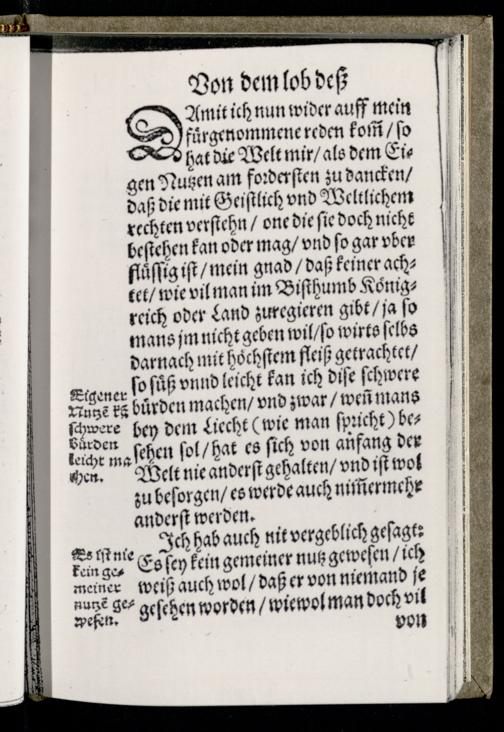 Von dem lob deß
DAmit ich nun wider auff mein
fürgenommene reden kom̃ / so
hat die Welt mir / als dem Ei-
gen Nutzen am fordersten zu dancken /
daß die mit Geistlich vnd Weltlichem
rechten verstehn / one die sie doch nicht
bestehen kan oder mag / vnd so gar vber
flüssig ist / mein gnad / daß keiner ach-
tet / wie vil man im Bisthumb König-
reich oder Land zuregieren gibt / ja so
mans jm nicht geben wil / so wirts selbs
darnach mit höchstem fleiß getrachtet /
so süß vnnd leicht kan ich dise schwere
bürden machen / vnd zwar / weñ mans
bey dem Liecht (wie man spricht) be-
sehen sol / hat es sich von anfang der
Welt nie anderst gehalten / vnd ist wol
zu besorgen / es werde auch nim̃ermehr
anderst werden.
Eigener
Nutzẽ kã
schwere
bürden
leicht ma
chen.
Ich hab auch nit vergeblich gesagt:
Es sey kein gemeiner nutz gewesen / ich
weiß auch wol / daß er von niemand je
gesehen worden / wiewol man doch vil
Es ist nie
kein ge-
meiner
nutzẽ ge-
wesen.
von